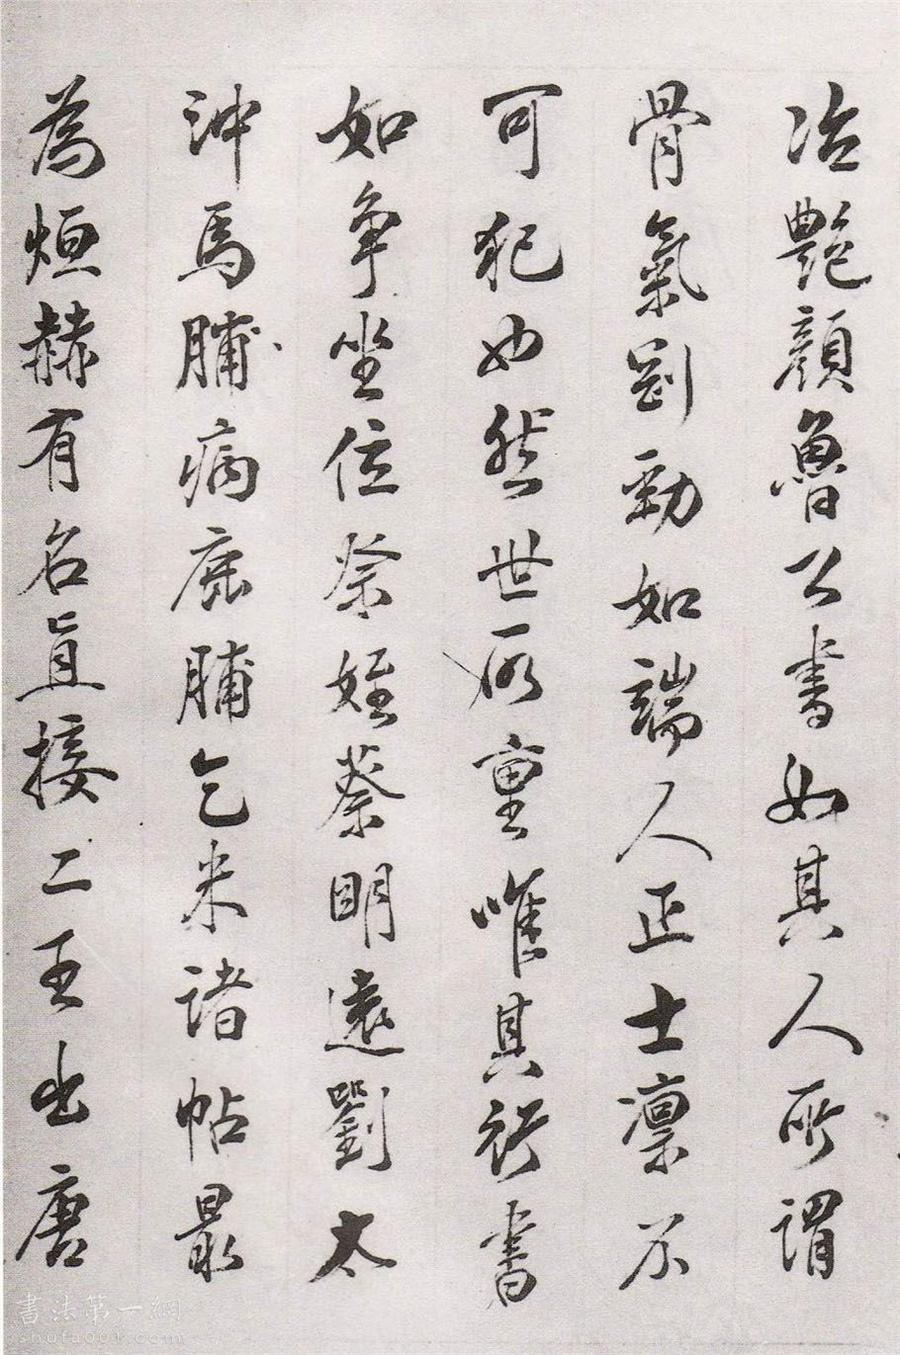 冶艷顏魯公書如其人所謂
骨氣剛勁如端人正士凛不
可犯也然世所重唯其行書
如争坐位祭姪蔡明遠劉太
沖馬脯病鹿脯乞米諸帖最
為烜赫有名直接二王出唐
書法第一網
shufa001.com